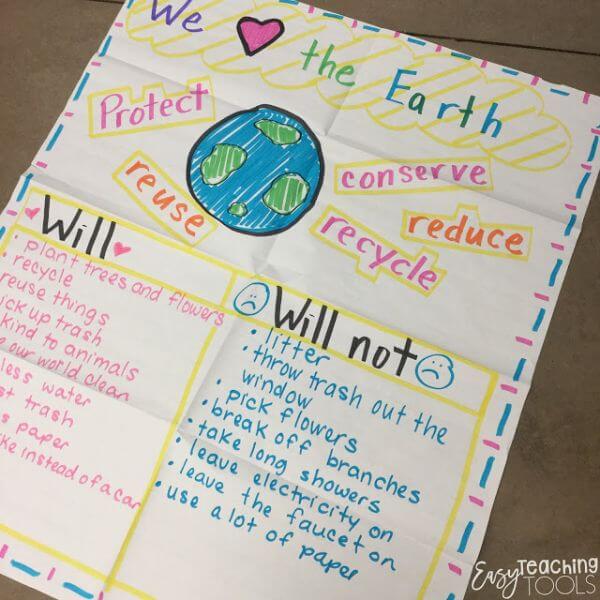 We the Earth
Protect
conserve
reuse
reduce
recycle
Will
plant trees and flowers
recycle
reuse things
pick up trash
kind to animals
our world clean
less water
trash
paper
instead of a car
Will not
• litter
• throw trash out the
window
• pick flowers
• break off branches
• take long showers
• leave electricity on
• leave the faucet on
• use a lot of paper
Easy Teaching
TOOLS